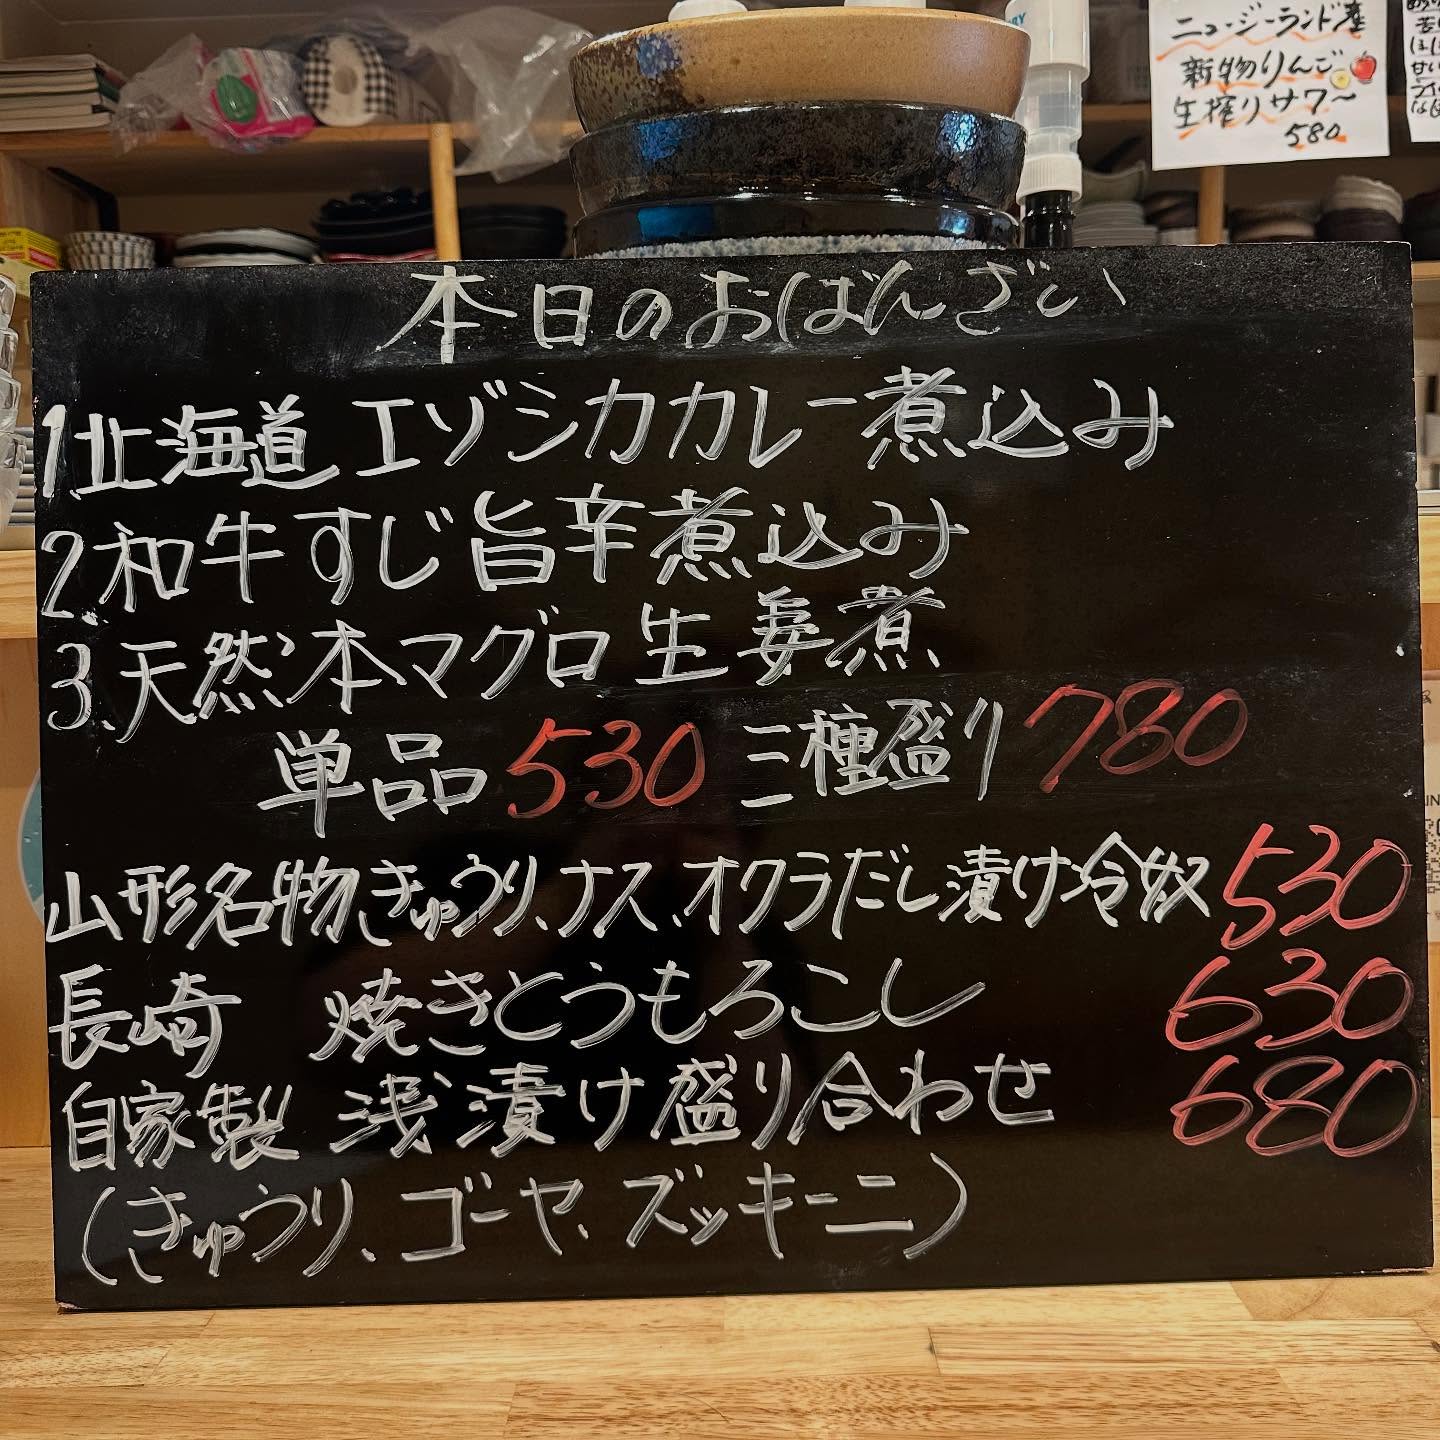 ニュージーランド産
新物りんご
生搾りサワー
580
本日のおばんざい
1.北海道 エゾシカカレー煮込み
2.和牛すじ旨辛煮込み
3.天然本マグロ生姜煮
単品530 三種盛り780
山形名物きゅうり、ナス、オクラだし漬け冷奴 530
長崎 焼きとうもろこし 630
自家製 浅漬け盛り合わせ 680
(きゅうり、ゴーヤ、ズッキーニ)